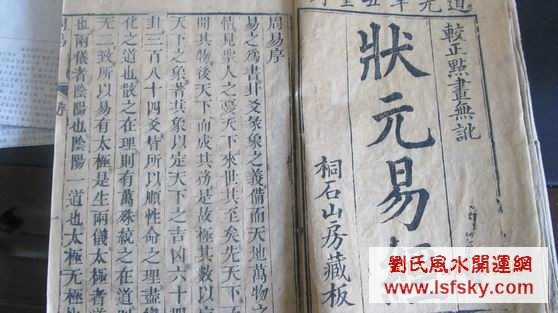 較正點畫無訛
狀元易經
桐石山房藏板
周易序
易之為書卦爻彖象之義備而天地萬物之
情見聖人之憂天下來世其至矣先天下而
開其物後天下而成其務是故極其數以定
天下之象著其象以定天下之吉凶六十四
卦三百八十四爻皆所以順性命之理盡變
化之道也散之在理則有萬殊統之在道則
无二致所以易有太極是生兩儀太極者道
也兩儀者陰陽也陰陽一道也太極无極也
周易 序
劉氏風水開運網
www.lsfsky.com